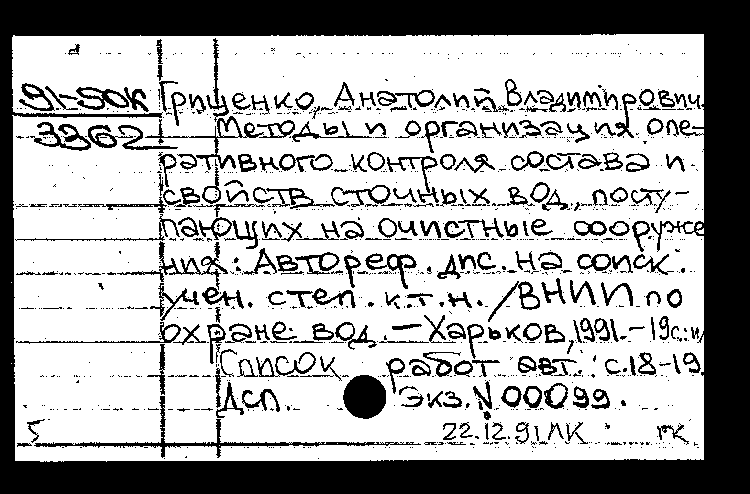 91-50К Грищенко, Анатолий Владимирович.
3362 Методы и организация опе-
ративного контроля состава и
свойств сточных вод, посту-
пающих на очистные сооруже
ния: Автореф. дис. на соиск.
учен. степ. к.т.н. /ВНИИ по
охране вод. — Харьков, 1991. – 19с.: ил
Список работ авт.: с.18-19.
ДСП. Экз. N 00099.
5 22.12.91 ЛК гк